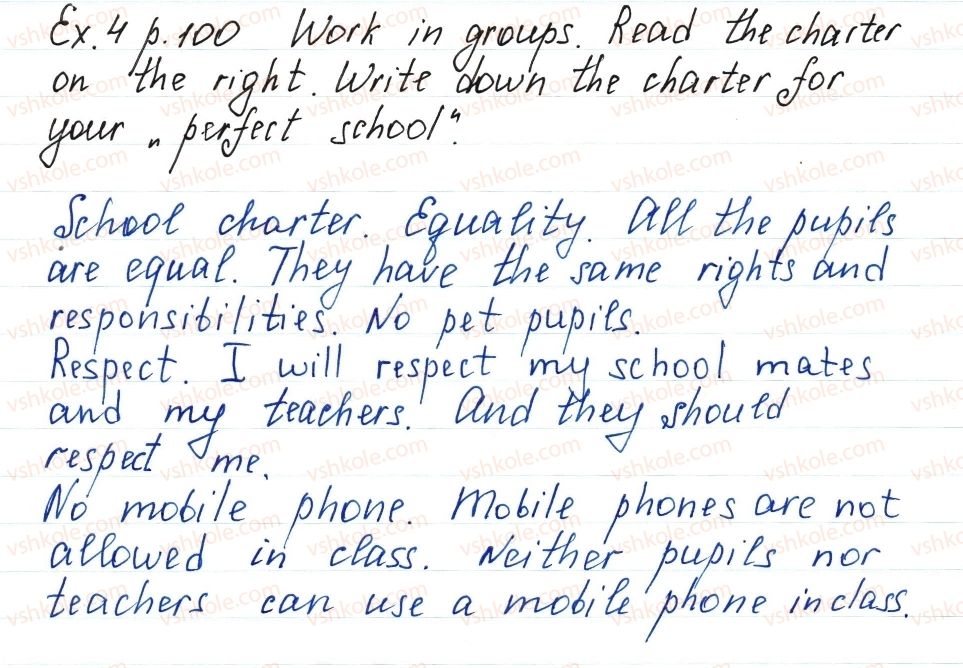 Ex. 4 p. 100 Work in groups. Read the charter
on the right. Write down the charter for
your „perfect school“.
School charter. Equality. All the pupils
are equal. They have the same rights and
responsibilities. No pet pupils.
Respect. I will respect my school mates
and my teachers. And they should
respect me.
No mobile phone. Mobile phones are not
allowed in class. Neither pupils nor
teachers can use a mobile phone in class.
vshkole.com